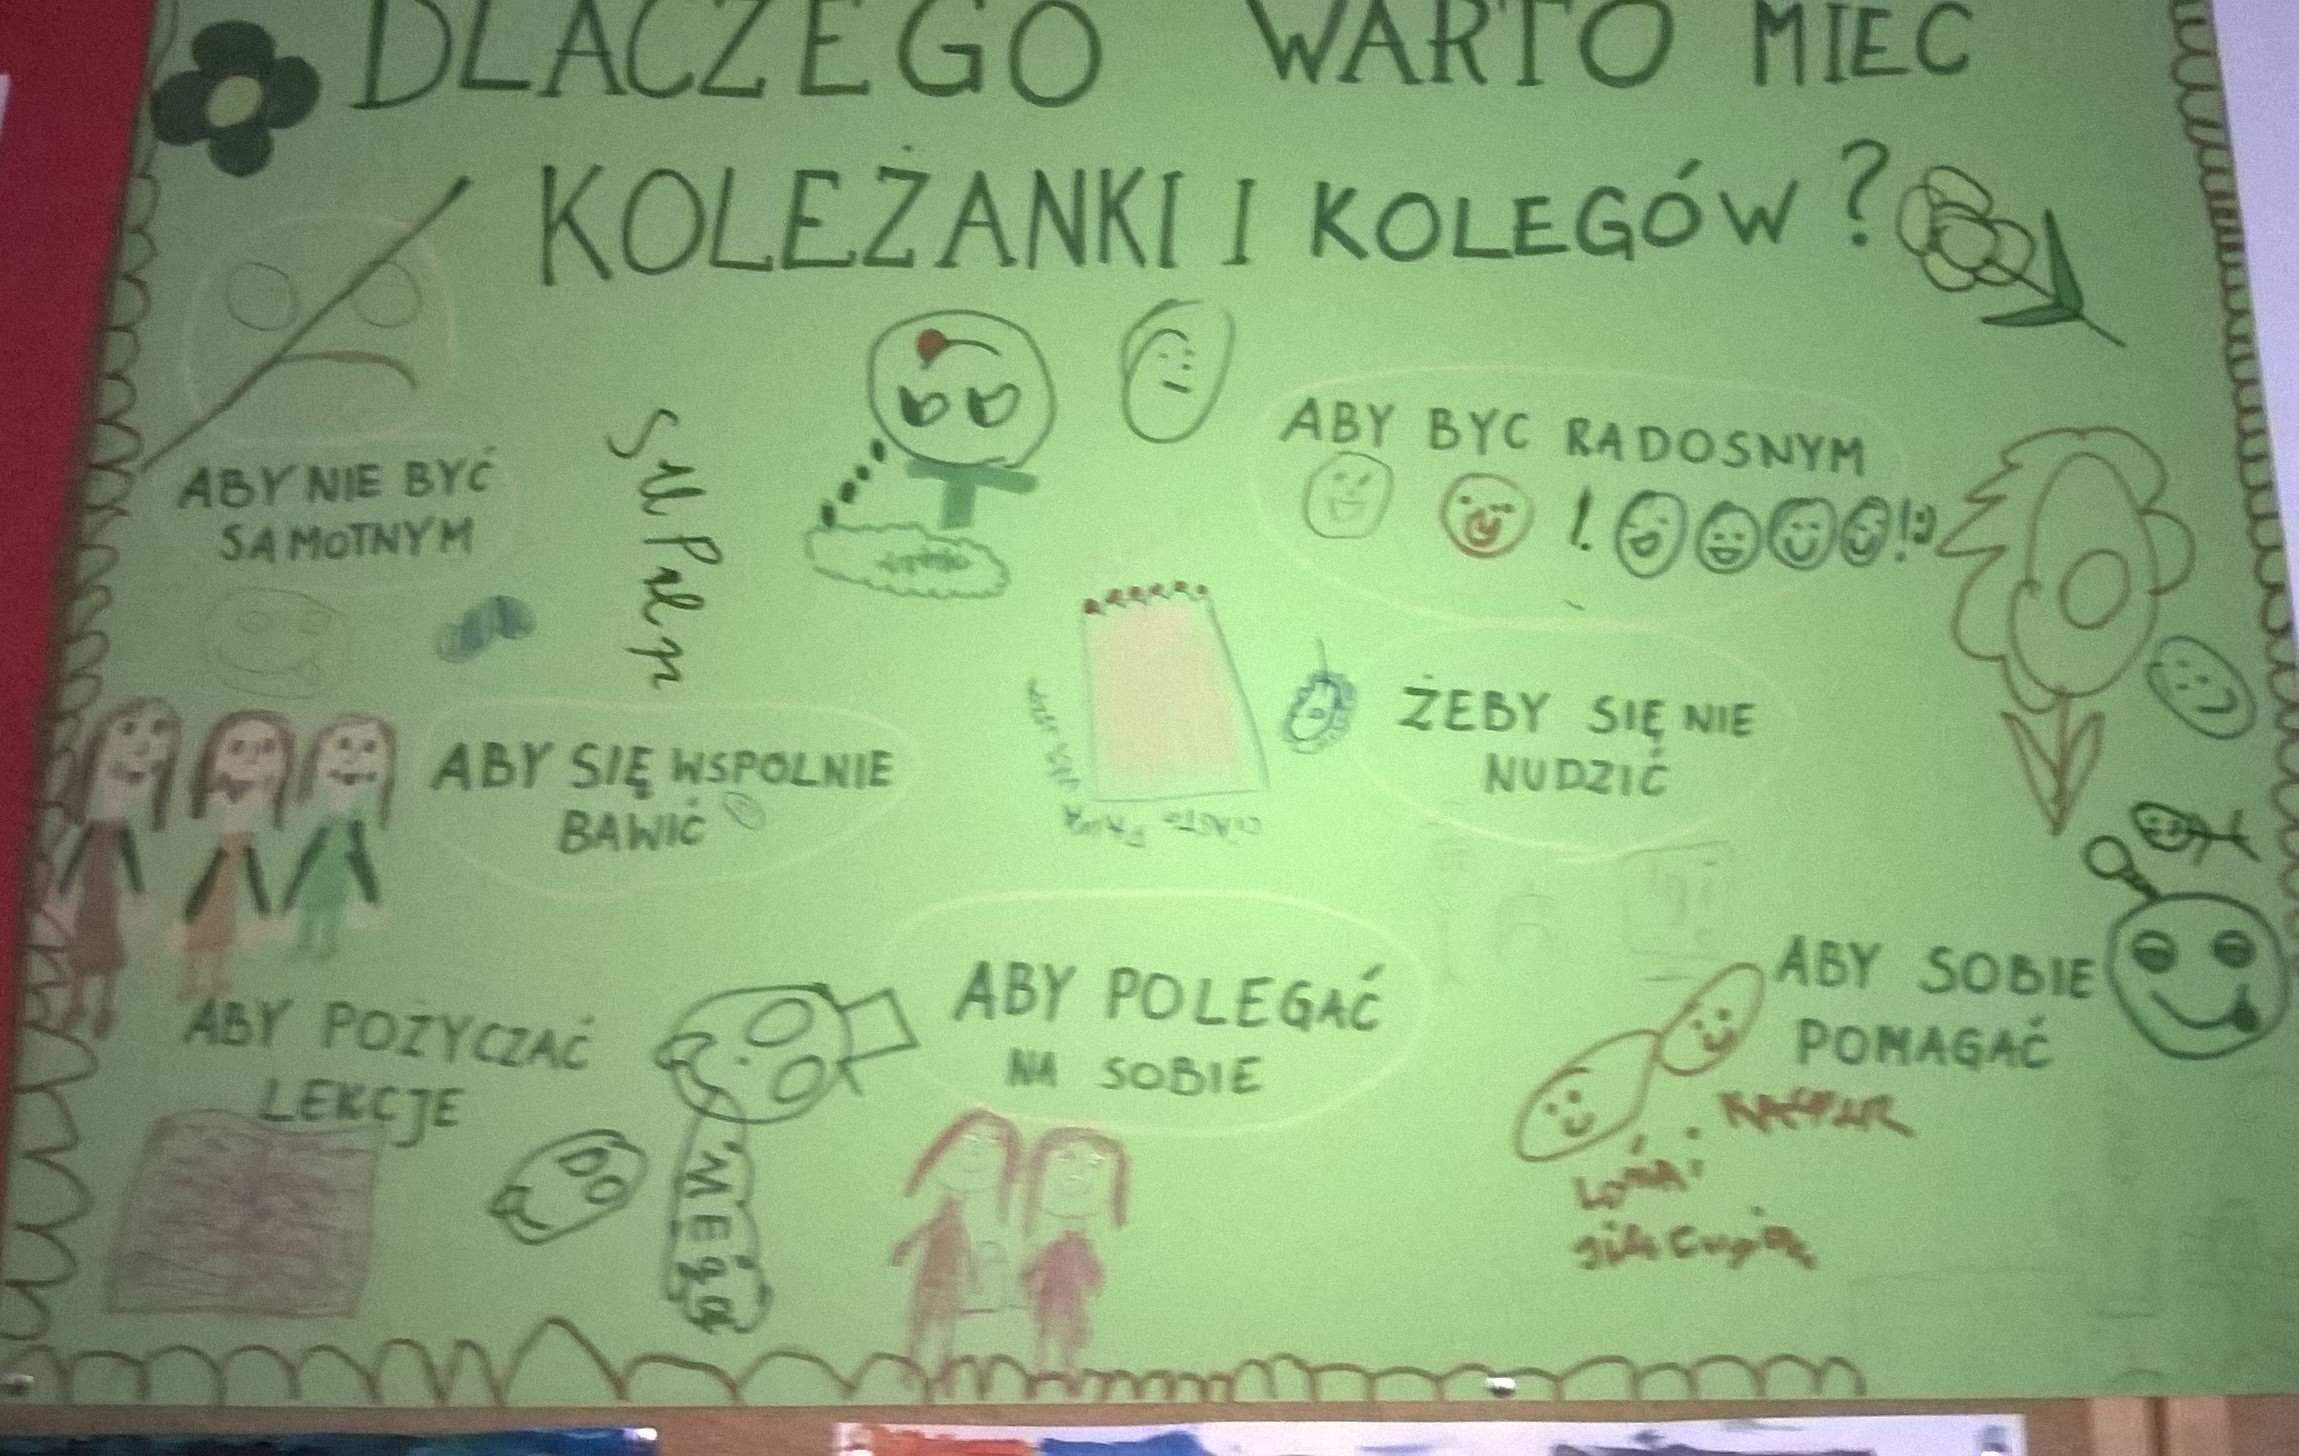 DLACZEGO WARTO MIEC
KOLEŻANKI I KOLEGÓW?
ABY NIE BYĆ
SAMOTNYM
ABY BYC RADOSNYM
! !
ABY SIĘ WSPOLNIE
BAWIĆ
ŻEBY SIĘ NIE
NUDZIĆ
ABY POŻYCZAĆ
LEKCJE
ABY POLEGAĆ
NA SOBIE
ABY SOBIE
POMAGAĆ
MEGA